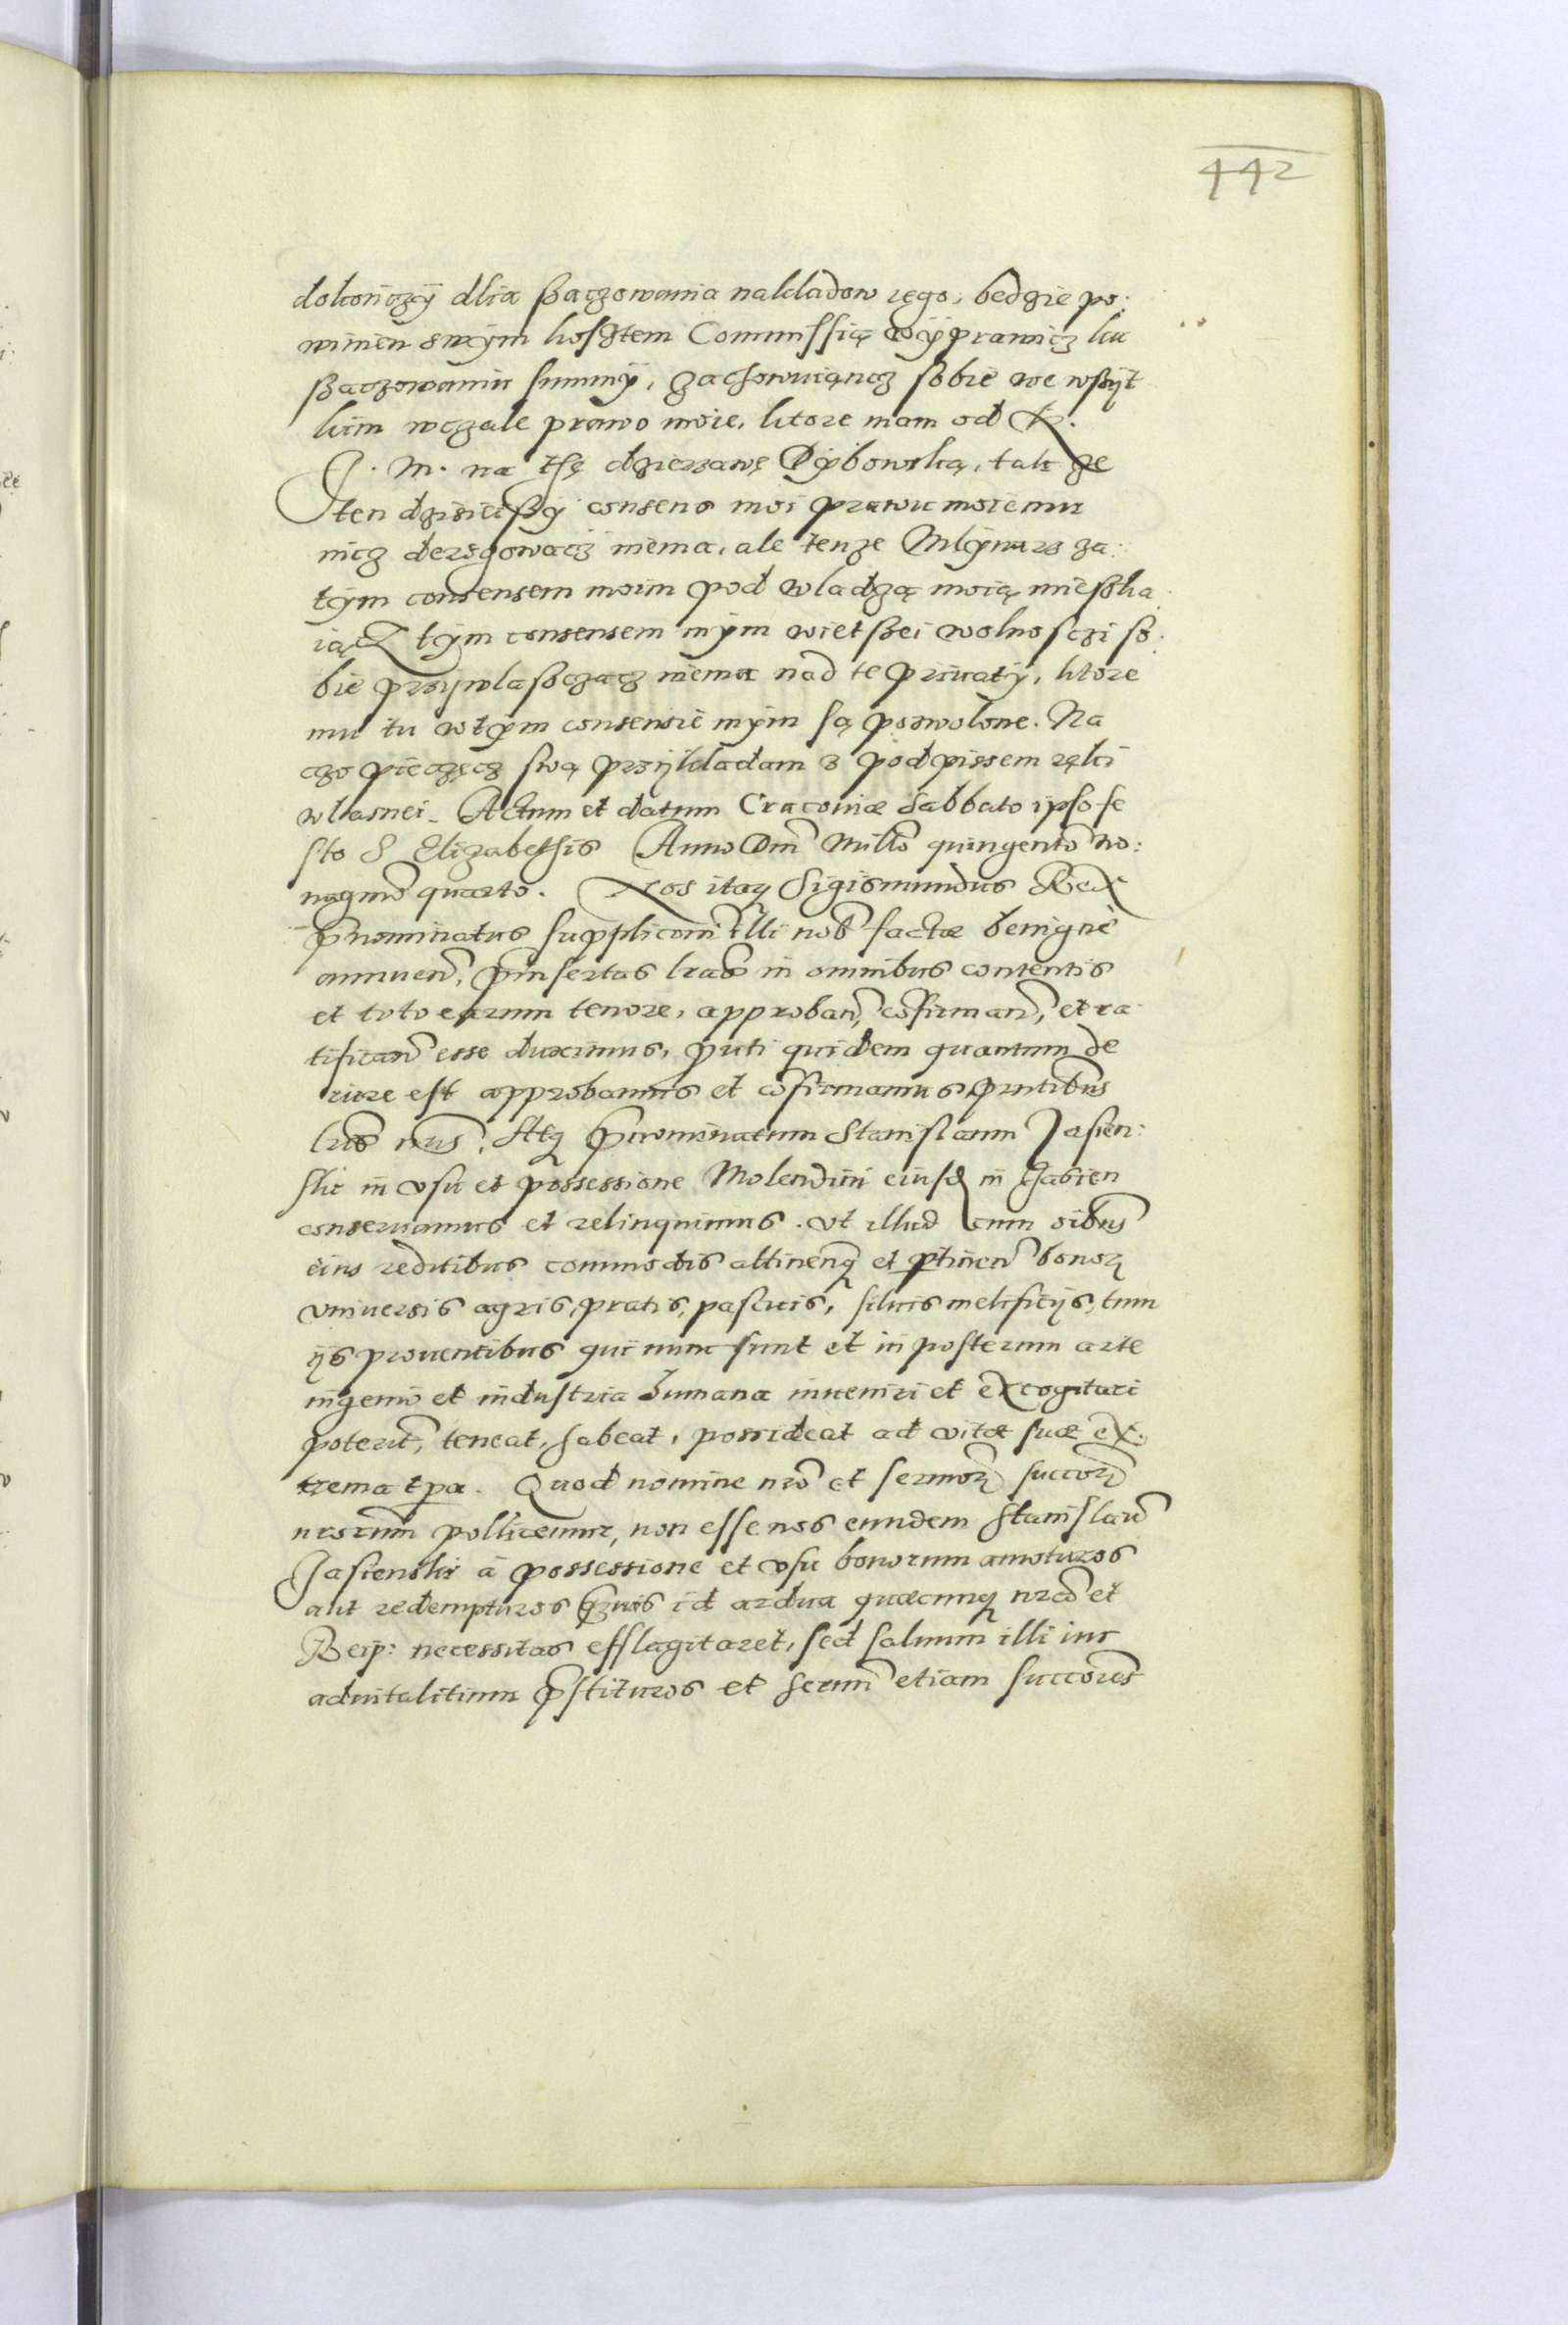 442
dokończÿ dlia szaczowania nakladow iego, bedzie po:
winien swÿm kosztem Commissią wÿprawicz ku
szaczowaniu summÿ, zachowuiąncz sobie we wszÿt
kim wczale prawo moie, ktore mam od K.
J. M. na thę dzierzawę Dÿbowską, tak ze
ten dzisieiszÿ consens moi prawu moiemu
nicz derogowacz niema, ale tenze Mlÿnarz za
tÿm consensem moim pod wladzą moią mieszka
iącz tÿm consensem mÿm wietszei wolnosczi so:
bie przÿwlasczacz niema nad te priuatÿ, ktore
mu tu w tÿm consensie mÿm są pozwolone. Na
czo pieczęcz swą przÿkladam z podpissem ręki
wlasnei. Actum et datum Cracouiæ Sabbato ipso fe
sto S Elizabethis Anno Dni Millo quingento no:
nagmo quarto. Nos itaq Sigismundus Rex
pnominatus suppliconi illi nob factæ benigne
annuen, pinsertas lras in omnibus contentis
et toto earum tenore, approban, cofirman, et ra
tifican esse duximus, puti quidem quantum de
iure est approbamus et cofirmamus pntibus
lris nris. Atq pnominatum Stanislaum Jasien:
ski in vsu et possessione Molendini eiusd in Gabien
conseruamus et relinquimus. vt illud cum oibus
eius reditibus commodis attinenq et ptinen bonoR
vniuersis agris, pratis, pascuis, siluis mellificijs, tum
ijs prouentibus qui nunc sunt et in posterum arte
ingenio et industria humana inueniri et excogitari
poterit, teneat, habeat, possideat ad vitæ suæ ex:
trema tpa. Quod nomine nro et sermoR succoR
nrorum pollicemur, non esse nos eundem Stanislau
Jasienski à possessione et vsu bonorum amoturos
aut redempturos quis id ardua quæcunq nra et
Reip: necessitas efflagitaret, sed saluum illi ius
aduitalitium pstituros et sermi etiam succores